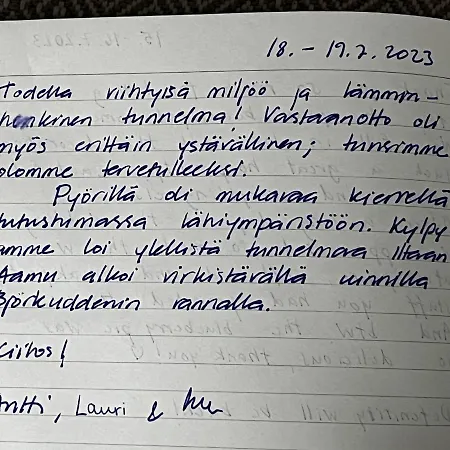 18. – 19.7.2023
Todella viihtyisä miljöö ja lämmin-
henkinen tunnelma! Vastaanotto oli
myös erittäin ystävällinen; tunsimme
olomme tervetulleeksi.
Pyörillä oli mukavaa kierrellä
tutustumassa lähiympäristöön. Kylpy
amme loi ylellistä tunnelmaa iltaan
Aamu alkoi virkistävällä uinnilla
Björkuddenin rannalla.
Kiitos!
Antti, Lauri &